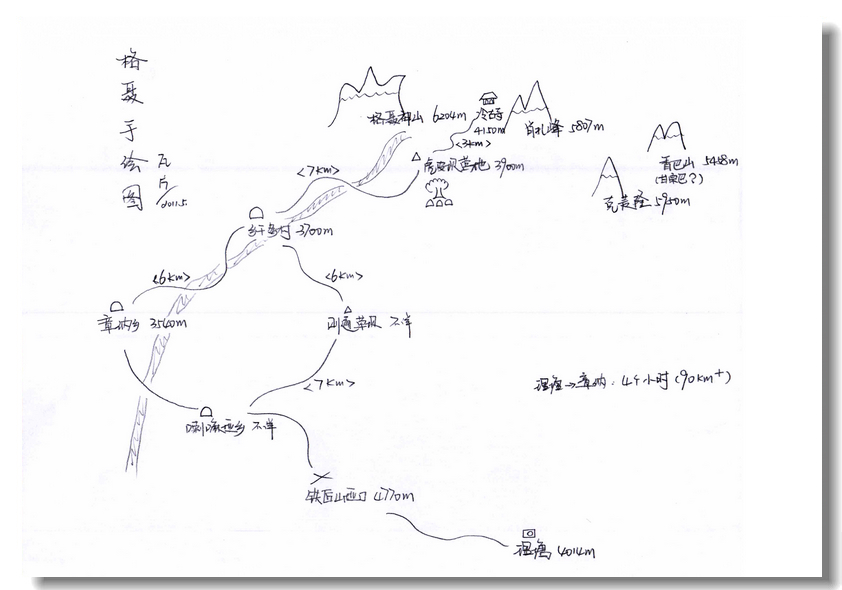 格聂手绘图
瓦片
2011.5
格聂神山 6204m
冷古寺
4150m
肖扎峰 5807m
<3km>
虎皮坝营地 3900m
<7km>
肖巴山 5458m
5950m
乡村 3700m
<6km>
<6km>
章纳乡 3540m
草坝 不详
<7km>
理塘→章纳:4个小时(90km+)
喇嘛垭乡 不详
铁匠山垭口 4770m
理塘 4014m